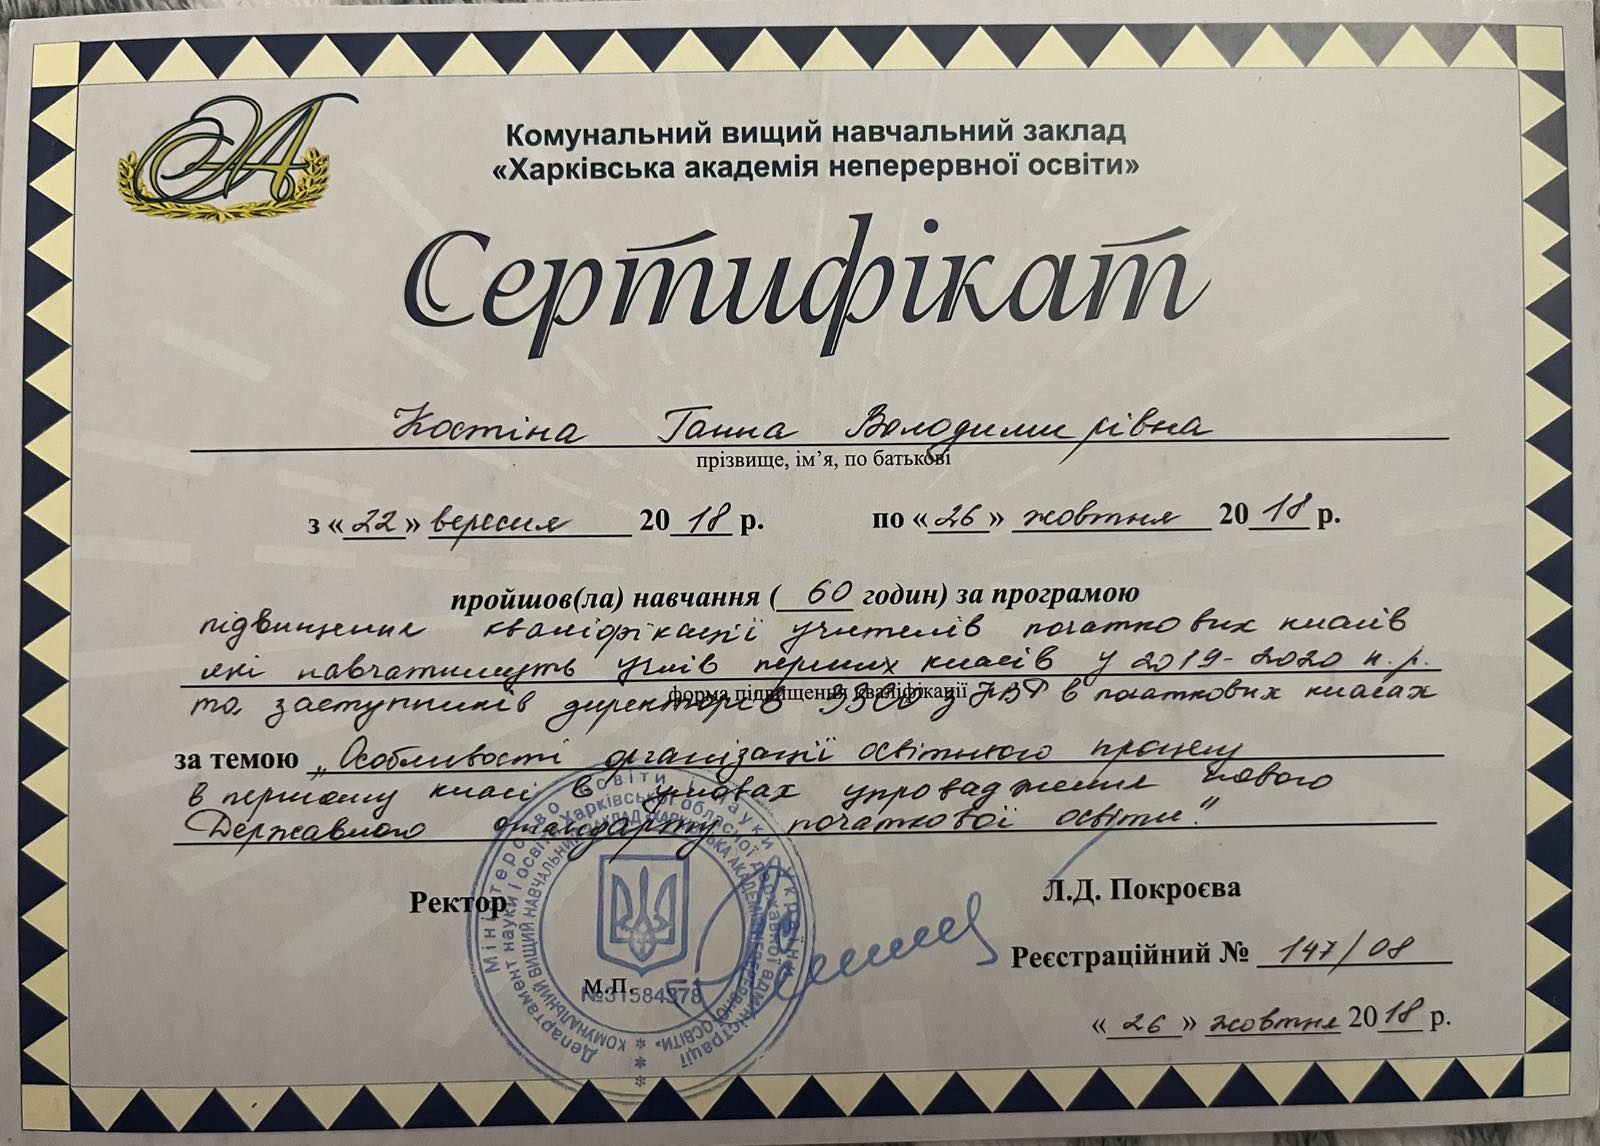 Комунальний вищий навчальний заклад
«Харківська академія неперервної освіти»
Сертифікат
Костіна Ганна Володимирівна
прізвище, ім’я, по батькові
з «22» вересня 2018 р. по «26» жовтня 2018 р.
пройшов(ла) навчання (60 годин) за програмою
підвищення кваліфікації учителів початкових класів
які навчатимуть учнів перших класів у 2019-2020 н.р.
форма підвищення кваліфікації
та заступників директорів ЗЗСО з НВР в початкових класах
за темою „Особливості організації освітнього процесу
в першому класі в умовах упровадження нового
Державного стандарту початкової освіти."
Ректор Л.Д. Покроєва
Реєстраційний № 147/08
М.П.
«26» жовтня 2018 р.
Міністерство освіти і науки України
Департамент науки і освіти Харківської обласної державної адміністрації
КОМУНАЛЬНИЙ ВИЩИЙ НАВЧАЛЬНИЙ ЗАКЛАД «ХАРКІВСЬКА АКАДЕМІЯ НЕПЕРЕРВНОЇ ОСВІТИ»
№31584378